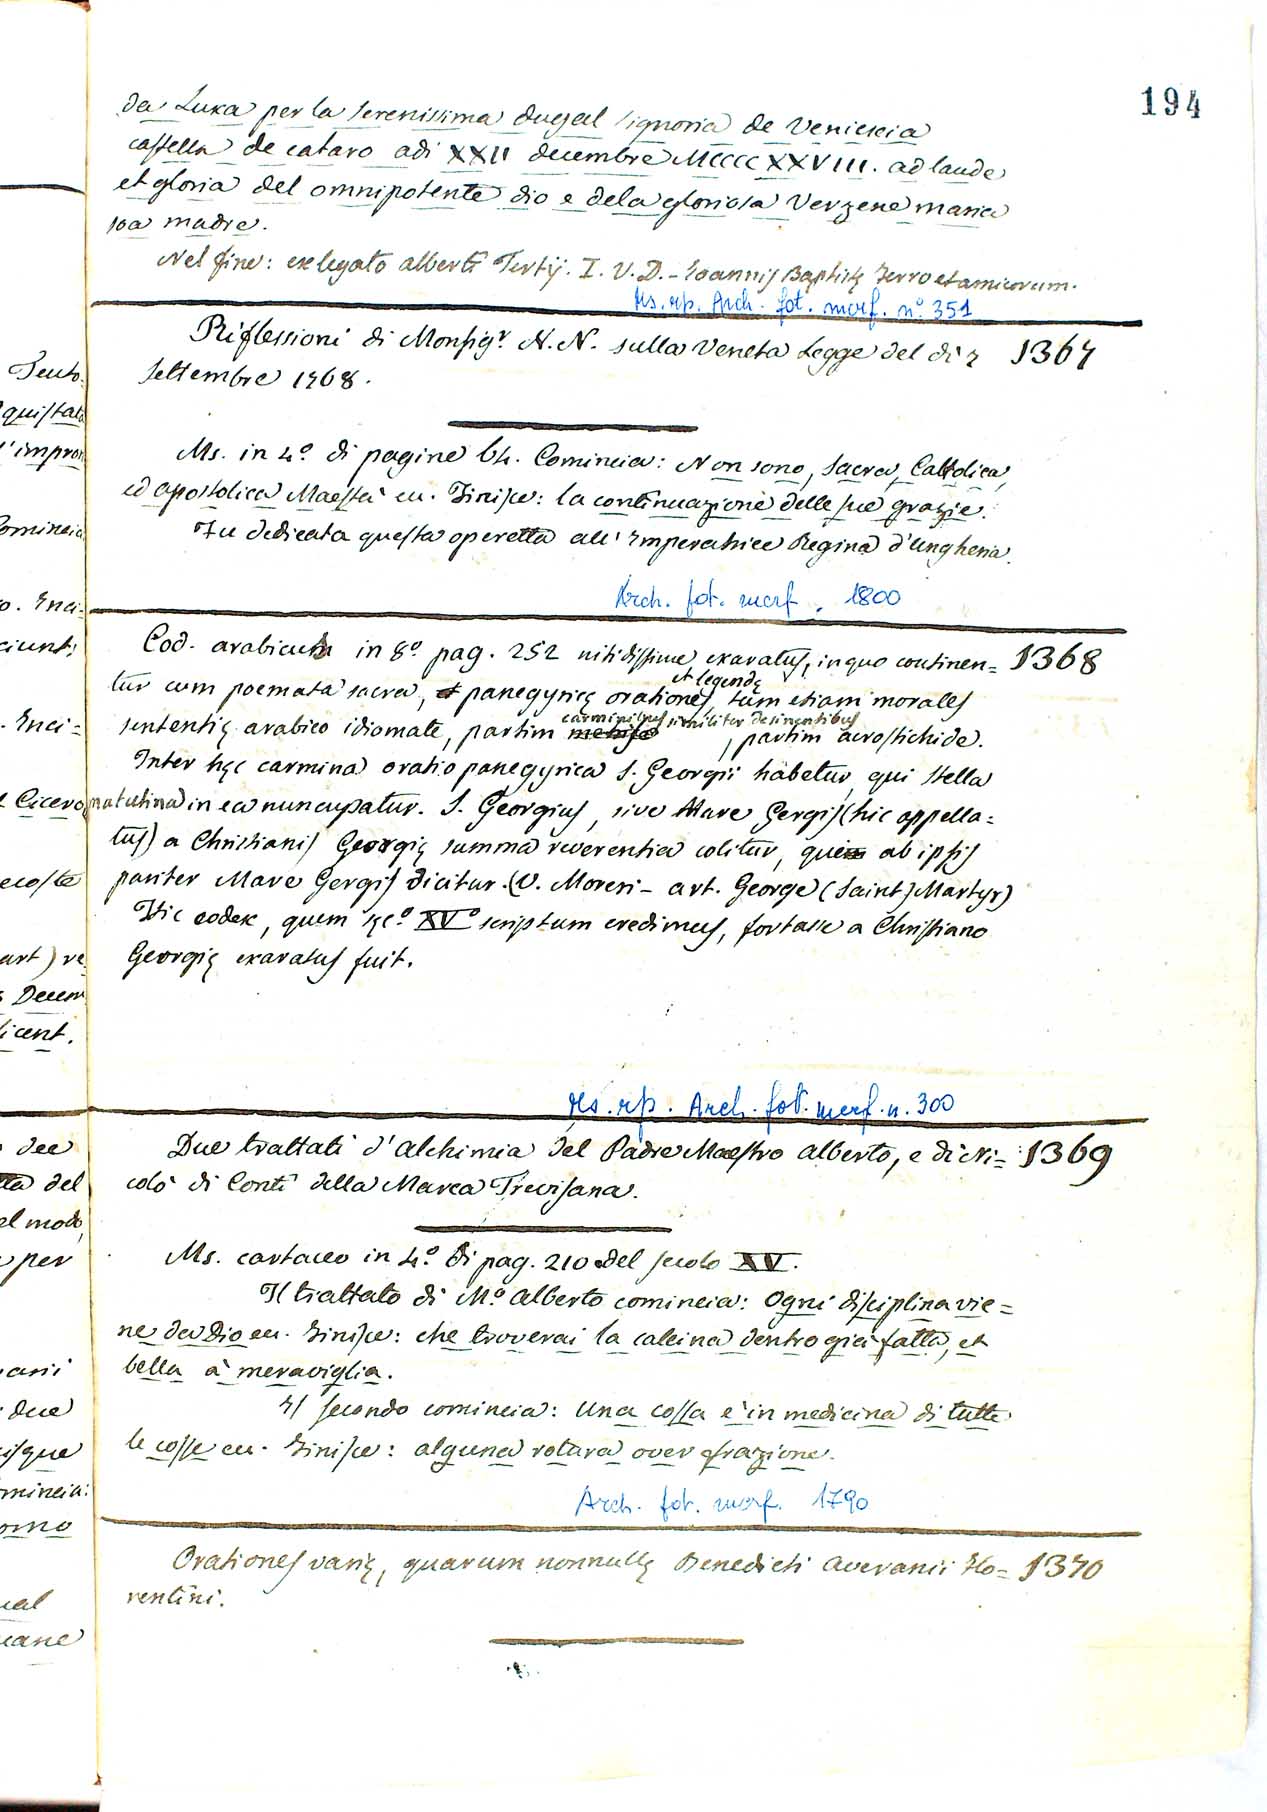 194
da Luxa per la serenissima dugal signoria de Veniexia
castella de cataro adi XXII decembre MCCCCXXVIII. ad laude
et gloria del omnipotente dio e dela gloriosa Verzene maria
soa madre.
Nel fine: ex legato Alberti Tertij. I. V. D. - Ioannis Baptistę Ferro et amicorum.
Ms. rip. Arch. fot. marf. n.º 351
Riflessioni di Monsigr. N. N. sulla Veneta Legge del di 7 1367
Settembre 1768.
Ms. in 4.º di pagine 64. Comincia: Non sono, Sacra, Cattolica,
ed apostolica Maestà ec. Finisce: la continuazione delle sue grazie.
Fu dedicata questa operetta all' Imperatrice Regina d'Ungheria.
Arch. fot. marf. 1800
Cod. arabicus in 8.º pag. 252 nitidissime exaratus, in quo continen= 1368
et legendę
tur cum poemata sacra, et panegyricę orationes, tum etiam morales
carminibus similiter desinentibus
sententię arabico idiomate, partim , partim acrostichide.
Inter hęc carmina oratio panegyrica S. Georgii habetur, qui stella
matutina in ea nuncupatur. S. Georgius, sive Mare Gergis (hic appella=
tus) a Christianis Georgię summa reverentia colitur, quem ab ipsis
pariter Mare Gergis dicitur. (V. Moreri - art. George (Saint) Martyr)
Hic codex, quem sęc.º XV.º scriptum credimus, fortasse a Christiano
Georgię exaratus fuit.
Ms. rip. Arch. fot. marf. n. 300
Due trattati d'Alchimia del Padre Maestro Alberto, e di Ni= 1369
colò di Conti della Marca Trevisana.
Ms. cartaceo in 4.º di pag. 210 del secolo XV.
Il trattato di M.º Alberto comincia: Ogni disciplina vie=
ne da Dio ec. Finisce: che troverai la calcina dentro già fatta, et
bella à meraviglia.
Il secondo comincia: Una cossa è in medicina di tutte
le cosse ec. Finisce: alguna rotura over frazione.
Arch. fot. marf. 1790
Orationes varię, quarum nonnullę Benedicti Averanii Flo= 1370
rentini.